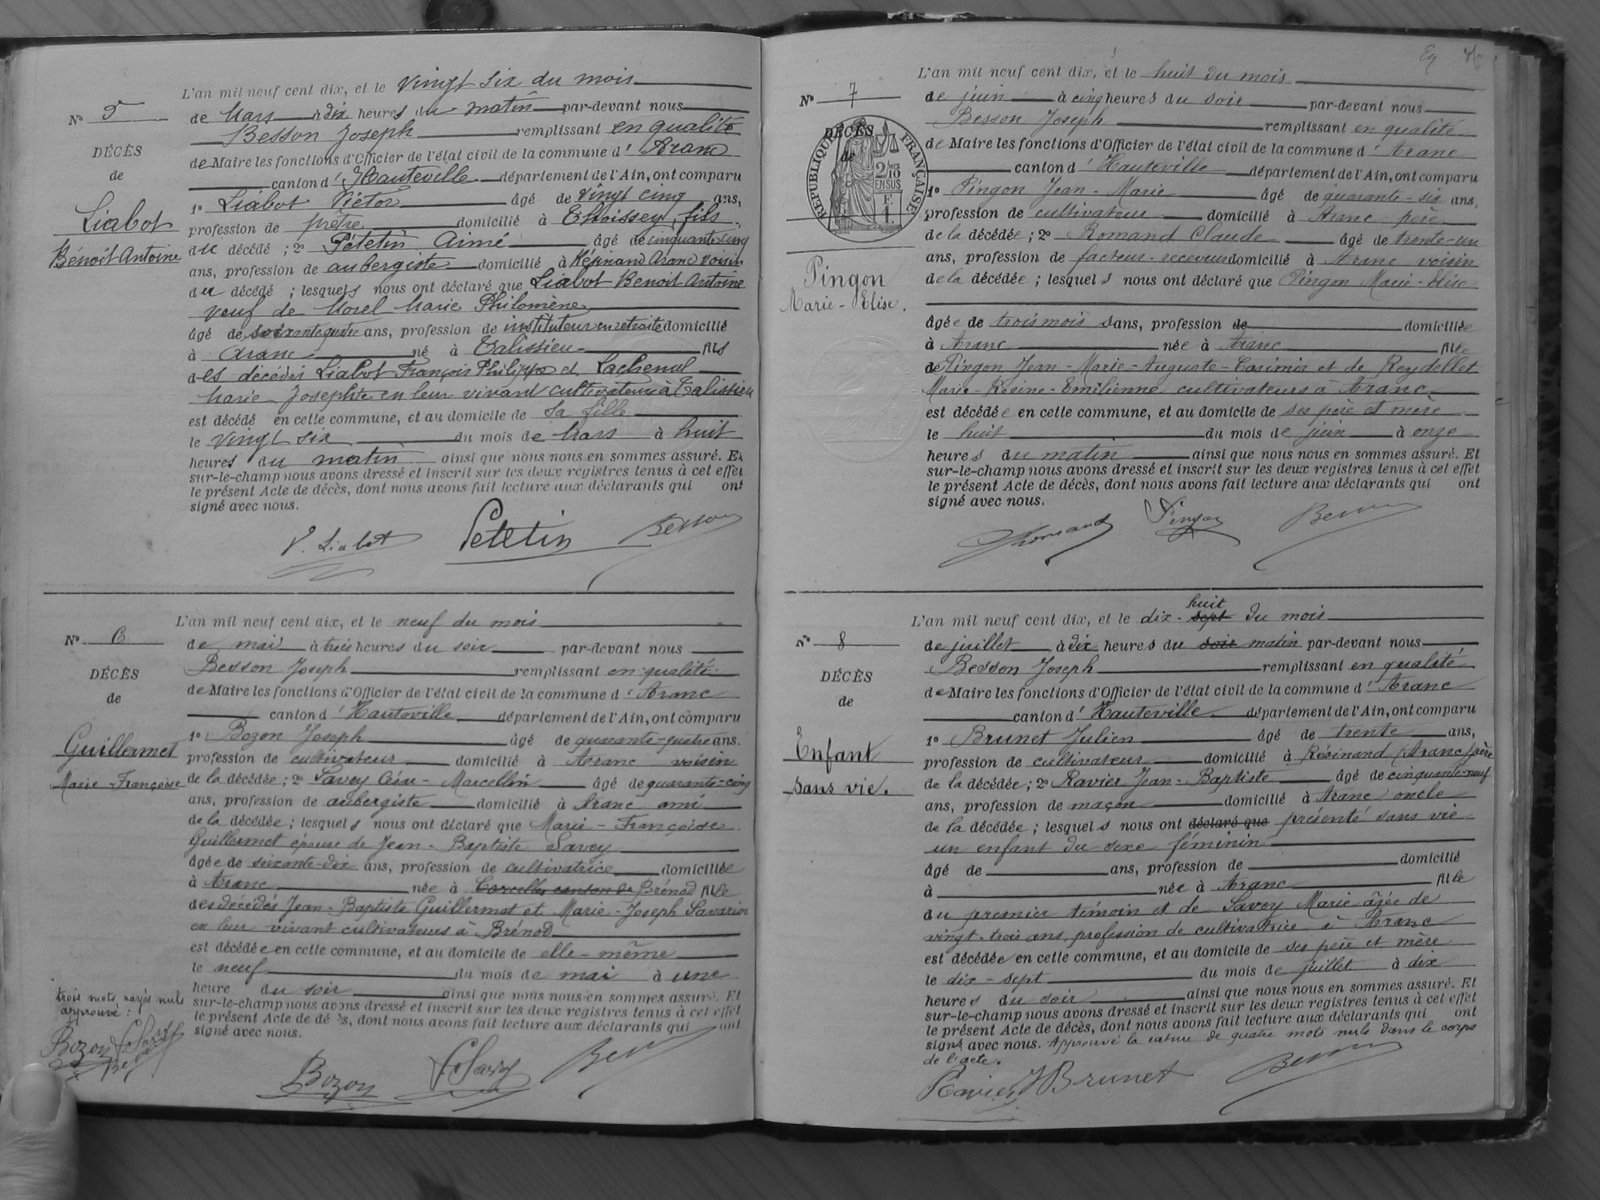 L'an mil neuf cent dix, et le vingt six du mois
N° 5
de Mars à dix heures du matin par-devant nous
Besson Joseph remplissant en qualité
DÉCÈS
de Maire les fonctions d'Officier de l'état civil de la commune d'Aranc
de
canton d'Hauteville département de l'Ain, ont comparu
1° Liabot Victor âgé de vingt cinq ans,
Liabot
Benoît Antoine
profession de prêtre domicilié à fils
du décédé ; 2° Pététin Aimé âgé de cinquante cinq
ans, profession de aubergiste domicilié à Résinand Aranc voisin
du décédé ; lesquels nous ont déclaré que Liabot Benoit Antoine
veuf de Morel Marie Philomène
âgé de soixante quatre ans, profession de instituteur en retraite domicilié
à Aranc né à Talissieu fils
des décédés Liabot François Philippe et Lachenal
Marie Josephte en leur vivant cultivateurs à Talissieu
est décédé en cette commune, et au domicile de sa fille
le vingt six du mois de Mars à huit
heures du matin ainsi que nous nous en sommes assuré. Et
sur-le-champ nous avons dressé et inscrit sur les deux registres tenus à cet effet
le présent Acte de décès, dont nous avons fait lecture aux déclarants qui ont
signé avec nous.
V. Liabot Petetin Besson
L'an mil neuf cent dix, et le neuf du mois
N° 6
de mai à trois heures du soir par-devant nous
Besson Joseph remplissant en qualité
DÉCÈS
de Maire les fonctions d'Officier de l'état civil de la commune d'Aranc
de
canton d'Hauteville département de l'Ain, ont comparu
1° Bozon Joseph âgé de quarante-quatre ans.
Guillermet
Marie-Françoise
profession de cultivateur domicilié à Aranc voisin
de la décédée ; 2° Savey Marcellin âgé de quarante-cinq
ans, profession de aubergiste domicilié à Aranc ami
de la décédée ; lesquels nous ont déclaré que Marie-Françoise
Guillermet épouse de Jean-Baptiste Savey
âgée de soixante-dix ans, profession de cultivatrice domiciliée
à Aranc née à Corcelles canton de Brénod fille
des décédés Jean-Baptiste Guillermet et Marie-Joseph Savarin
en leur vivant cultivateurs à Brénod
est décédée en cette commune, et au domicile de elle-même
le neuf du mois de mai à une
heure du soir ainsi que nous nous en sommes assuré. Et
sur-le-champ nous avons dressé et inscrit sur les deux registres tenus à cet effet
le présent Acte de décès, dont nous avons fait lecture aux déclarants qui ont
signé avec nous.
trois mots rayés nuls
approuvé :
Bozon
Bozon Savey Besson
L'an mil neuf cent dix, et le huit du mois
N° 7
de juin à cinq heures du soir par-devant nous
Besson Joseph remplissant en qualité
DÉCÈS
de
RÉPUBLIQUE FRANÇAISE
2/10 EN SUS
de Maire les fonctions d'Officier de l'état civil de la commune d'Aranc
canton d'Hauteville département de l'Ain, ont comparu
1° Pingon Jean-Marie âgé de quarante-six ans,
profession de cultivateur domicilié à Aranc père
de la décédée ; 2° Romand Claude âgé de trente-un
ans, profession de facteur-receveur domicilié à Aranc voisin
Pingon
Marie-Elise.
de la décédée ; lesquels nous ont déclaré que Pingon Marie-Elise
âgée de trois mois sans, profession de domiciliée
à Aranc née à Aranc fille
de Pingon Jean-Marie-Auguste-Casimir et de Reydellet
Marie-Résine-Emilienne cultivateurs à Aranc
est décédée en cette commune, et au domicile de ses père et mère
le huit du mois de juin à onze
heures du matin ainsi que nous nous en sommes assuré. Et
sur-le-champ nous avons dressé et inscrit sur les deux registres tenus à cet effet
le présent Acte de décès, dont nous avons fait lecture aux déclarants qui ont
signé avec nous.
Romand Pingon Besson
L'an mil neuf cent dix, et le dix-sept huit du mois
N° 8
de juillet à dix heures du soir matin par-devant nous
Besson Joseph remplissant en qualité
DÉCÈS
de Maire les fonctions d'Officier de l'état civil de la commune d'Aranc
de
canton d'Hauteville département de l'Ain, ont comparu
1° Brunet Julien âgé de trente ans,
Enfant
sans vie.
profession de cultivateur domicilié à Résinand (Aranc) père
de la décédée ; 2° Ravier Jean-Baptiste âgé de cinquante-neuf
ans, profession de maçon domicilié à Aranc oncle
de la décédée ; lesquels nous ont déclaré que présenté sans vie
un enfant du sexe féminin
âgé de ans, profession de domicilié
à née à Aranc fille
du premier témoin et de Savey Marie âgée de
vingt-trois ans, profession de cultivatrice à Aranc
est décédée en cette commune, et au domicile de ses père et mère
le dix-sept du mois de juillet à dix
heures du soir ainsi que nous nous en sommes assuré. Et
sur-le-champ nous avons dressé et inscrit sur les deux registres tenus à cet effet
le présent Acte de décès, dont nous avons fait lecture aux déclarants qui ont
signé avec nous. Approuvé la rature de quatre mots nuls dans le corps
de l'acte.
Ravier J Brunet Besson